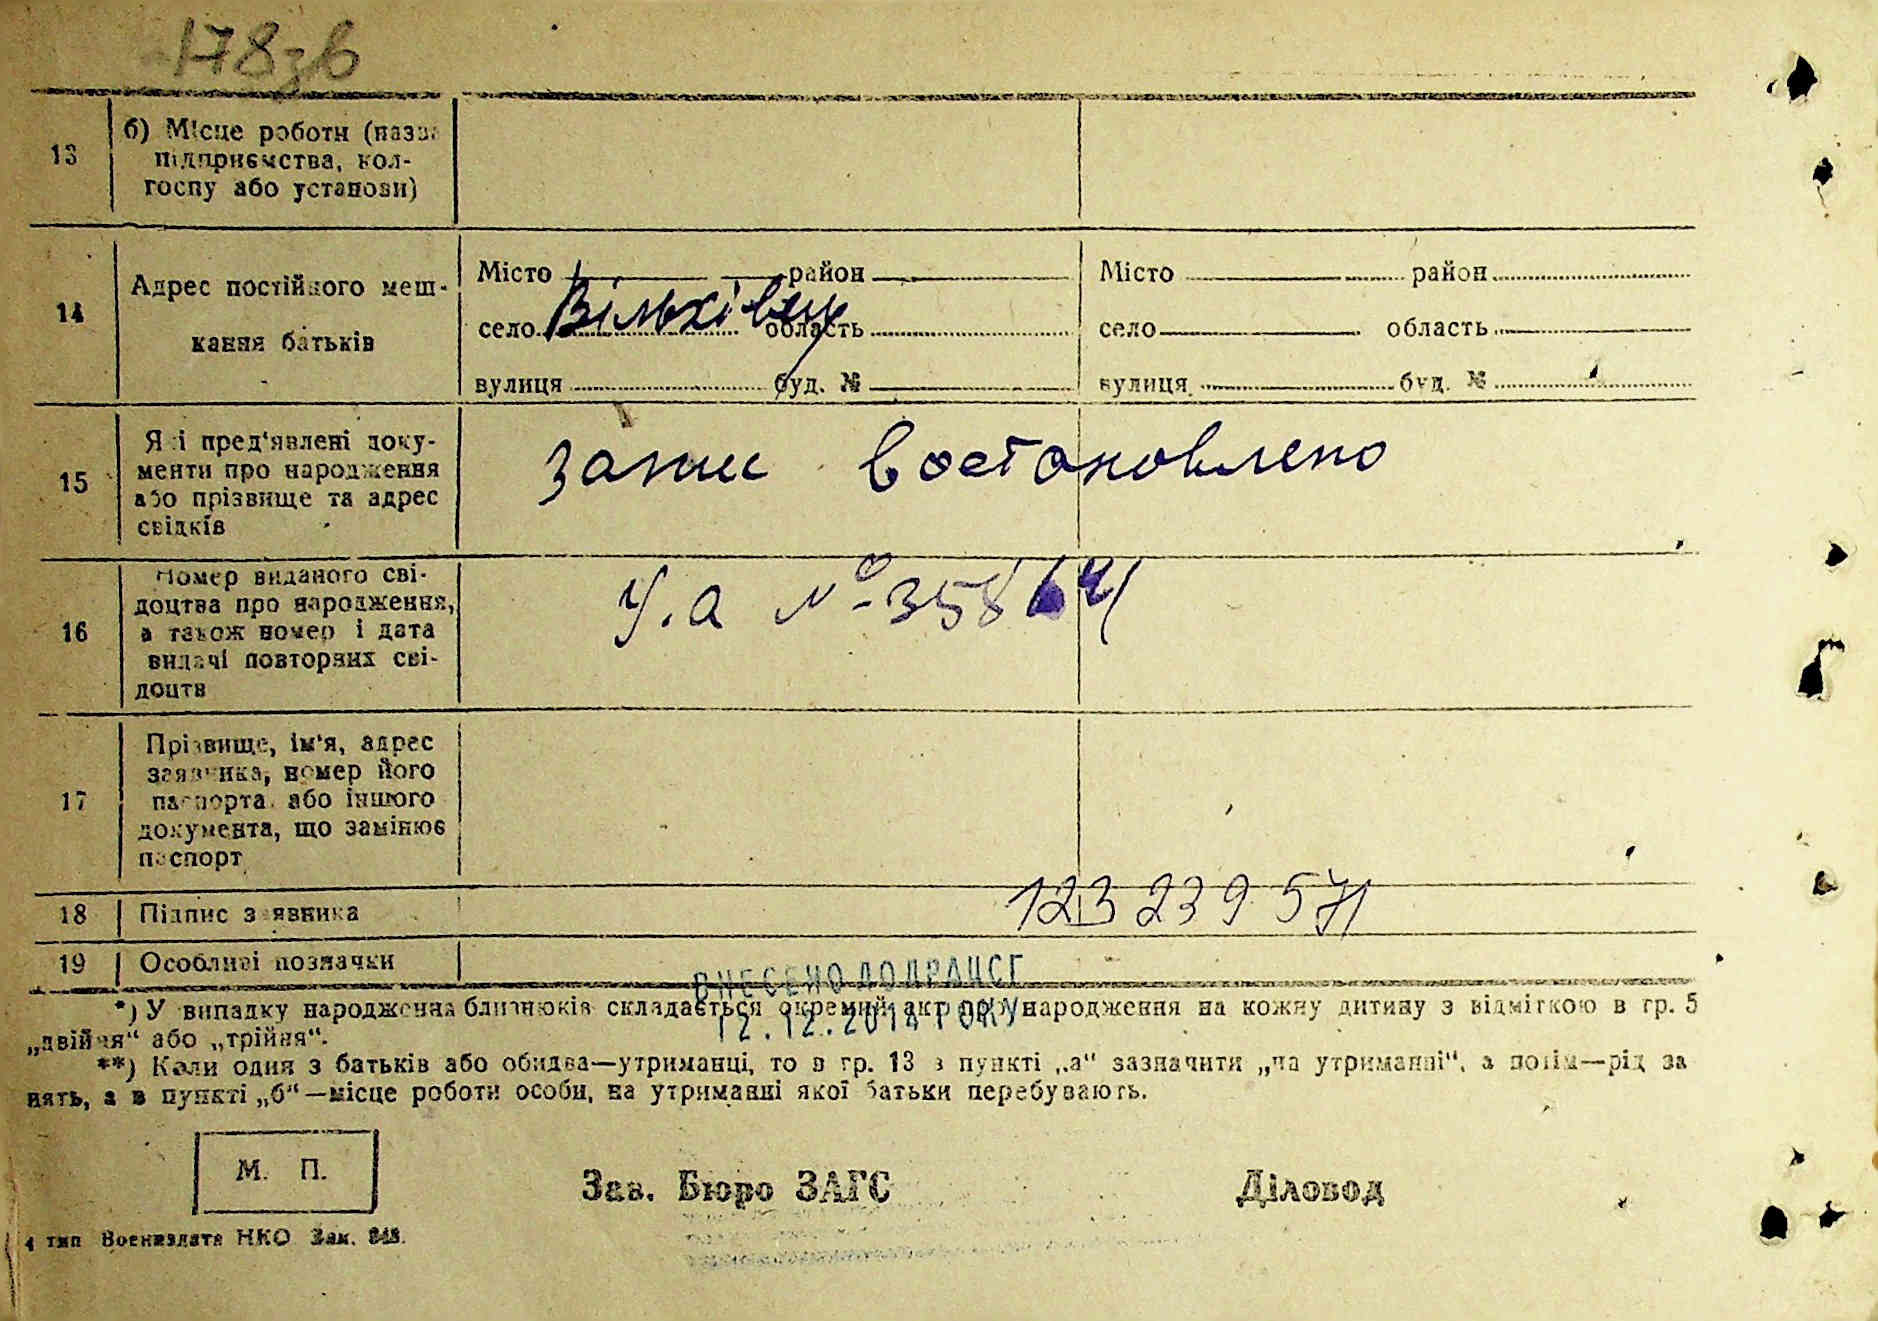 178зв
13
б) Місце роботи (назва
підприємства, кол-
госпу або установи)
14
Адрес постійного меш-
кання батьків
Місто район
село Вільхівець область
вулиця буд. №
Місто район
село область
вулиця буд. №
15
Які пред'явлені доку-
менти про народження
або прізвище та адрес
свідків
запис востановлено
16
Номер виданого сві-
доцтва про народження,
а також номер і дата
видачі повторних сві-
доцтв
У.а №-358
17
Прізвище, ім'я, адрес
заявника, номер його
паспорта або іншого
документа, що замінює
паспорт
18
Підпис заявника
123 239 571
19
Особливі позначки
ВНЕСЕНО ДО ДРАЦСГ
12.12.2012 РОКУ
*) У випадку народження близнюків складається окремий акт про народження на кожну дитину з відміткою в гр. 5
„двійня“ або „трійня“.
**) Коли один з батьків або обидва—утриманці, то в гр. 13 в пункті „а“ зазначити „на утриманні“, а потім—рід за
нять, а в пункті „б“—місце роботи особи, на утриманні якої батьки перебувають.
М. П.
Зав. Бюро ЗАГС
Діловод
4 тип Воениздата НКО Зам. 848.